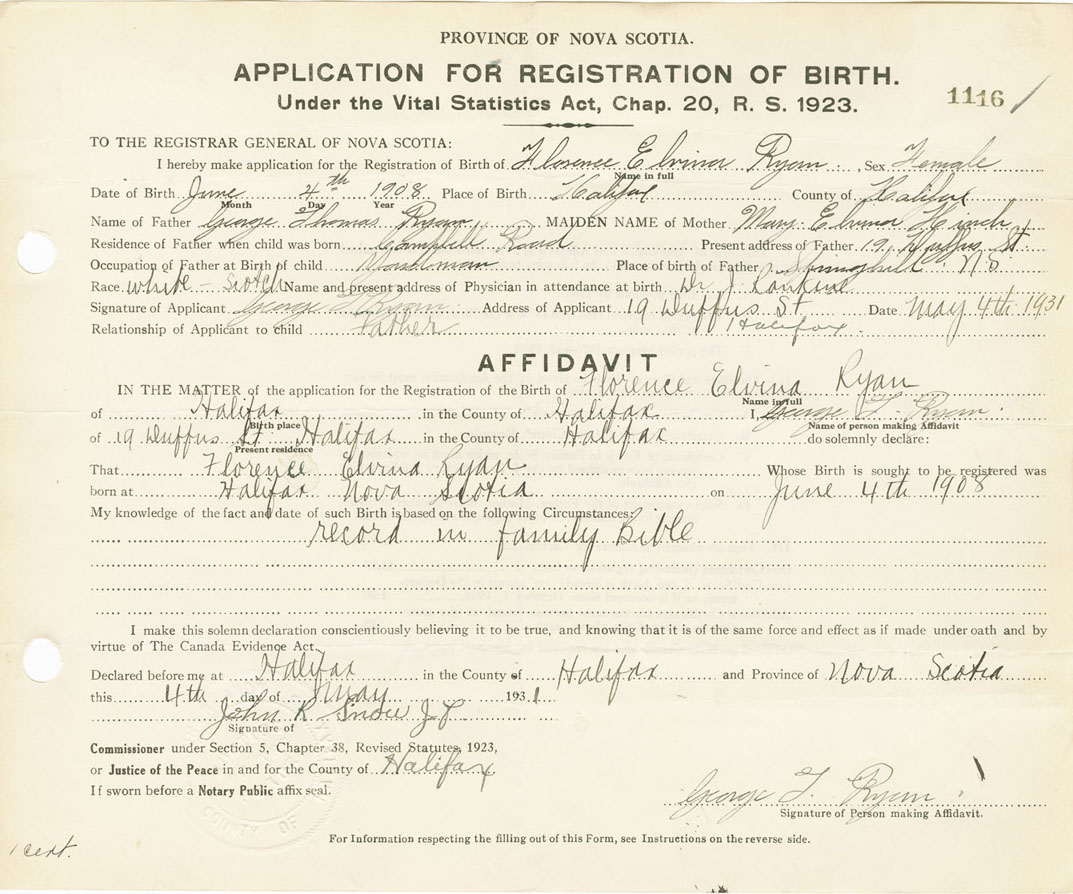 PROVINCE OF NOVA SCOTIA.
APPLICATION FOR REGISTRATION OF BIRTH.
1116
Under the Vital Statistics Act, Chap. 20, R. S. 1923.
TO THE REGISTRAR GENERAL OF NOVA SCOTIA:
I hereby make application for the Registration of Birth of Florence Elvina Ryan, Sex Female
Name in full
Date of Birth June 4th 1908 Place of Birth Halifax County of Halifax
Month Day Year
Name of Father George Thomas Ryan MAIDEN NAME of Mother Mary Elvina Hinch
Residence of Father when child was born Campbell Road Present address of Father 19 Duffus St
Occupation of Father at Birth of child Yardman Place of birth of Father Springhill NS
Race white - Scotch Name and present address of Physician in attendance at birth Dr J Rankine
Signature of Applicant George T Ryan Address of Applicant 19 Duffus St Date May 4th 1931
Relationship of Applicant to child Father Halifax
AFFIDAVIT
IN THE MATTER of the application for the Registration of the Birth of Florence Elvina Ryan
Name in full
of Halifax in the County of Halifax I, George T. Ryan
Birth place Name of person making Affidavit
of 19 Duffus St Halifax in the County of Halifax do solemnly declare:
Present residence
That Florence Elvina Ryan Whose Birth is sought to be registered was
born at Halifax Nova Scotia on June 4th 1908
My knowledge of the fact and date of such Birth is based on the following Circumstances:
record in family Bible
I make this solemn declaration conscientiously believing it to be true, and knowing that it is of the same force and effect as if made under oath and by
virtue of The Canada Evidence Act.
Declared before me at Halifax in the County of Halifax and Province of Nova Scotia
this 4th day of May 1931
John R Snow J P
Signature of
Commissioner under Section 5, Chapter 38, Revised Statutes, 1923,
or Justice of the Peace in and for the County of Halifax
If sworn before a Notary Public affix seal.
George T. Ryan
Signature of Person making Affidavit.
For Information respecting the filling out of this Form, see Instructions on the reverse side.
1 cert.